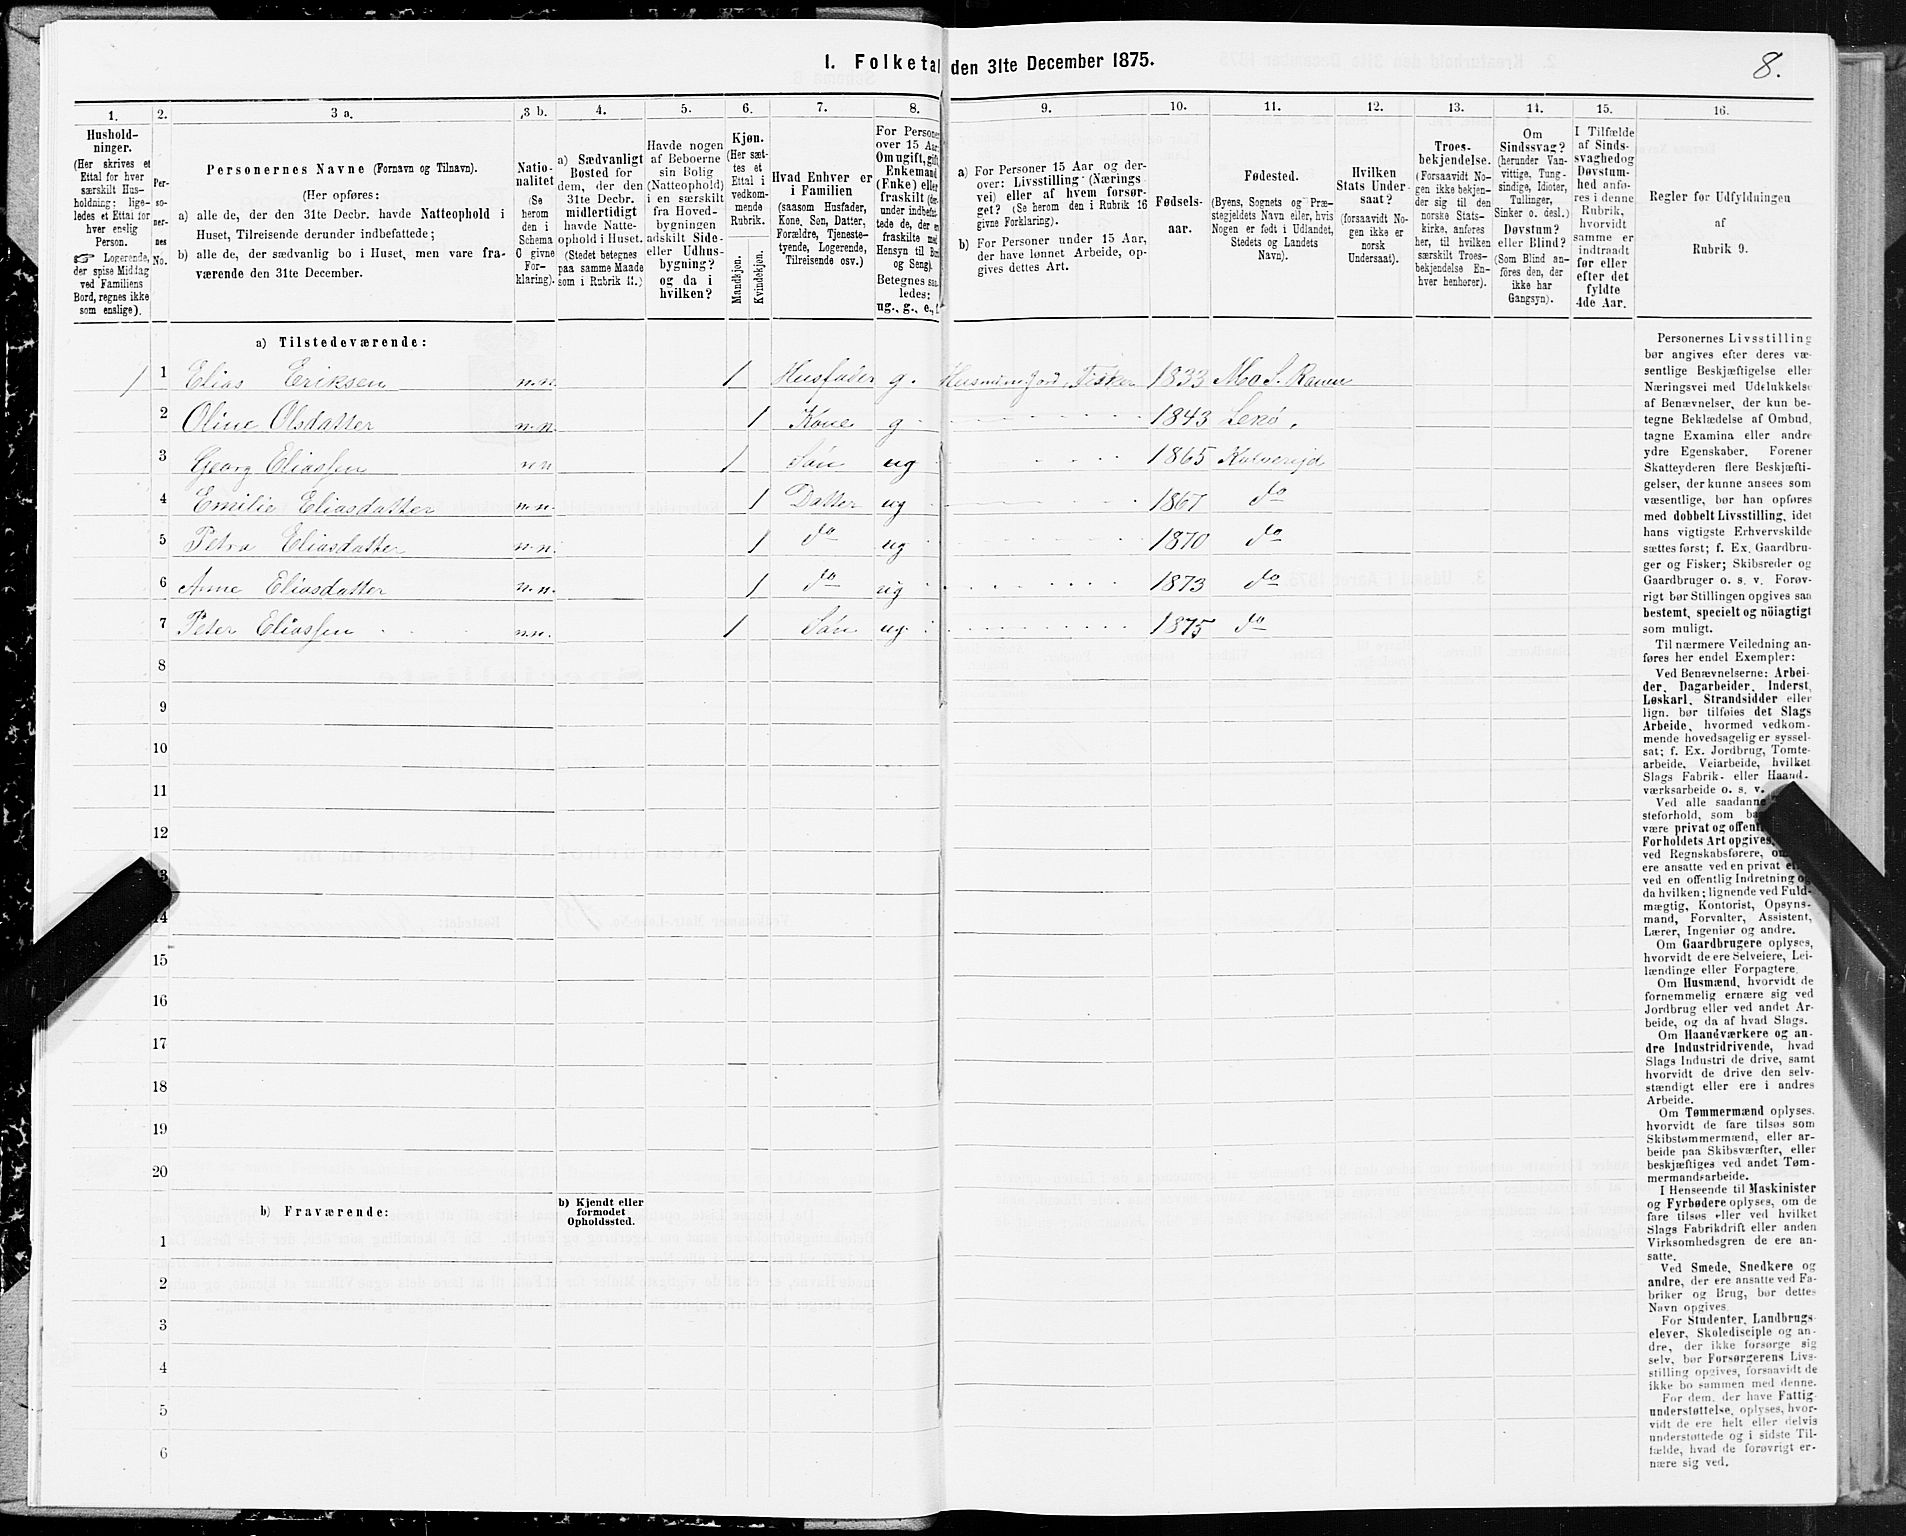 I. Folketal den 31te December 1875.
8.
1. 2. 3 a. 3 b. 4. 5. 6. 7. 8. 9. 10. 11. 12. 13. 14. 15. 16.
Hushold-
ninger.
(Her skrives et
Ettal for hver
særskilt Hus-
holdning; lige-
ledes et Ettal for
hver enslig
Person.
☞ Logerende,
der spise Middag
ved Familiens
Bord, regnes ikke
som enslige).
Per-
so-
ner-
nes
No.
Personernes Navne (Fornavn og Tilnavn).
(Her opføres:
a) alle de, der den 31te Decbr. havde Natteophold i
Huset, Tilreisende derunder indbefattede;
b) alle de, der sædvanlig bo i Huset, men vare fra-
værende den 31te December.
Natio-
nalitet
(Se
herom
den i
Schema
C givne
For-
klaring).
a) Sædvanligt
Bosted for
dem, der den
31te Decbr.
midlertidigt
havde Natte-
ophold i Huset.
(Stedet betegnes
paa samme Maade
som i Rubrik 11.)
Havde nogen
af Beboerne
sin Bolig
(Natteophold)
i en særskilt
fra Hoved-
bygningen
adskilt Side-
eller Udhus-
bygning?
og da i
hvilken?
Kjøn.
(Her sæt-
tes et
Ettal i
vedkom-
mende
Rubrik.
Mandkjøn.
Kvindekjøn.
Hvad Enhver er
i Familien
(saasom Husfader,
Kone, Søn, Datter,
Forældre, Tjeneste-
tyende, Logerende,
Tilreisende osv.)
For Personer
over 15 Aar:
Om ugift, gift,
Enkemand
(Enke) eller
fraskilt
Hensyn til Bord
og Seng).
ledes:
ug., g., e.,
a) For Personer 15 Aar og der-
over: Livsstilling (Nærings-
vei) eller af hvem forsør-
get? (Se herom den i Rubrik 16
givne Forklaring).
b) For Personer under 15 Aar,
der have lønnet Arbeide, op-
gives dettes Art.
Fødsels-
aar.
Fødested.
(Byens, Sognets og Præ-
stegjeldets Navn eller, hvis
Nogen er født i Udlandet,
Stedets og Landets
Navn).
Hvilken
Stats Under-
saat?
(forsaavidt No-
gen ikke er
norsk
Undersaat).
Troes-
bekjendelse.
(Forsaavidt No-
gen ikke bekjen-
der sig til den
norske Stats-
kirke, anføres
her, til hvilken
særskilt Troes-
bekjendelse En-
hver henhører).
Om
Sindssvag?
(herunder Van-
vittige, Tung-
sindige, Idioter,
Tullinger,
Sinker o. desl.)
Døvstum?
eller Blind?
(Som Blind an-
føres den, der
ikke har
Gangsyn).
I Tilfælde
af Sinds-
svaghed og
Døvstum-
hed anfø-
res i denne
Rubrik,
hvorvidt
samme er
indtraadt
før eller
efter det
fyldte
4de Aar.
Regler for Udfyldningen
af
Rubrik 9.
a) Tilstedeværende:
1 1 Elias Eriksen n.n. 1 Husfader g. Fisker 1833 Mo S. Ranen
2 Oline Olsdatter n.n 1 Kone g 1843 Lekø.
3 Georg Eliassen n n 1 Søn ug 1865 Kolvereid
4 Emilie Eliasdatter n.n. 1 Datter ug 1867 do
5 Petra Eliasdatter n.n. 1 do ug 1870 do
6 Anne Eliasdatter n.n. 1 do ug 1873 do
7 Peter Eliassen n.n. 1 Søn ug. 1875 do
8
9
10
11
12
13
14
15
16
17
18
19
20
b) Fraværende:
b) Kjendt eller
formodet
Opholdssted.
1
2
3
4
5
6
Personernes Livsstilling
bør angives efter deres væ-
sentlige Beskjæftigelse eller
Næringsvei med Udelukkelse
af Benævnelser, der kun be-
tegne Beklædelse af Ombud,
tagne Examina eller andre
ydre Egenskaber. Forener
Skatteyderen flere Beskjæfti-
gelser, der kunne ansees som
væsentlige, bør han opføres
med dobbelt Livsstilling, idet
hans vigtigste Erhvervskilde
sættes først; f. Ex. Gaardbru-
ger og Fisker; Skibsreder og
Gaardbruger o. s. v. Forøv-
rigt bør Stillingen opgives saa
bestemt, specielt og nöiagtigt
som muligt.
Til nærmere Veiledning an-
føres her endel Exempler:
Ved Benævnelserne: Arbei-
der, Dagarbeider, Inderst,
Løskarl, Strandsidder eller
lign. bør tilføies det Slags
Arbeide, hvormed vedkom-
mende hovedsagelig er syssel-
sat; f. Ex. Jordbrug, Tomte-
arbeide, Veiarbeide, hvilket
Slags Fabrik- eller Haand-
værksarbeide o. s. v.
Ved alle saadanne
steforhold, som
være privat og
Forholdets Art opgives,
ved Regnskabsførere,
ere ansatte ved en privat
ved en offentlig Indretning og
da hvilken; lignende ved Fuld-
mægtig, Kontorist, Opsyns-
mand, Forvalter, Assistent,
Lærer, Ingeniør og andre.
Om Gaardbrugere oplyses,
hvorvidt de ere Selveiere, Lei-
lændinge eller Forpagtere.
Om Husmænd, hvorvidt de
fornemmelig ernære sig ved
Jordbrug eller ved andet Ar-
beide, og da af hvad Slags.
Om Haandværkere og an-
dre Industridrivende, hvad
Slags Industri de drive, samt
hvorvidt de drive den selv-
stændigt eller ere i andres
Arbeide.
Om Tømmermænd oplyses,
hvorvidt de fare tilsøs som
Skibstømmermænd, eller ar-
beide paa Skibsværfter, eller
beskjæftiges ved andet Tøm-
mermandsarbeide.
I Henseende til Maskinister
og Fyrbødere oplyses, om de
fare tilsøs eller ved hvilket
Slags Fabrikdrift eller anden
Virksomhedsgren de ere an-
satte.
Ved Smede, Snedkere og
andre, der ere ansatte ved Fa-
briker og Brug, bør dettes
Navn opgives.
For Studenter, Landbrugs-
elever, Skoledisciple og an-
dre, der ikke forsørge sig
selv, bør Forsørgerens Livs-
stilling opgives, forsaavidt de
ikke bo sammen med denne.
For dem, der have Fattig-
understøttelse, oplyses, hvor-
vidt de ere helt eller delvis
understøttede og i sidste Til-
fælde, hvad de forøvrigt er-
nære sig ved.